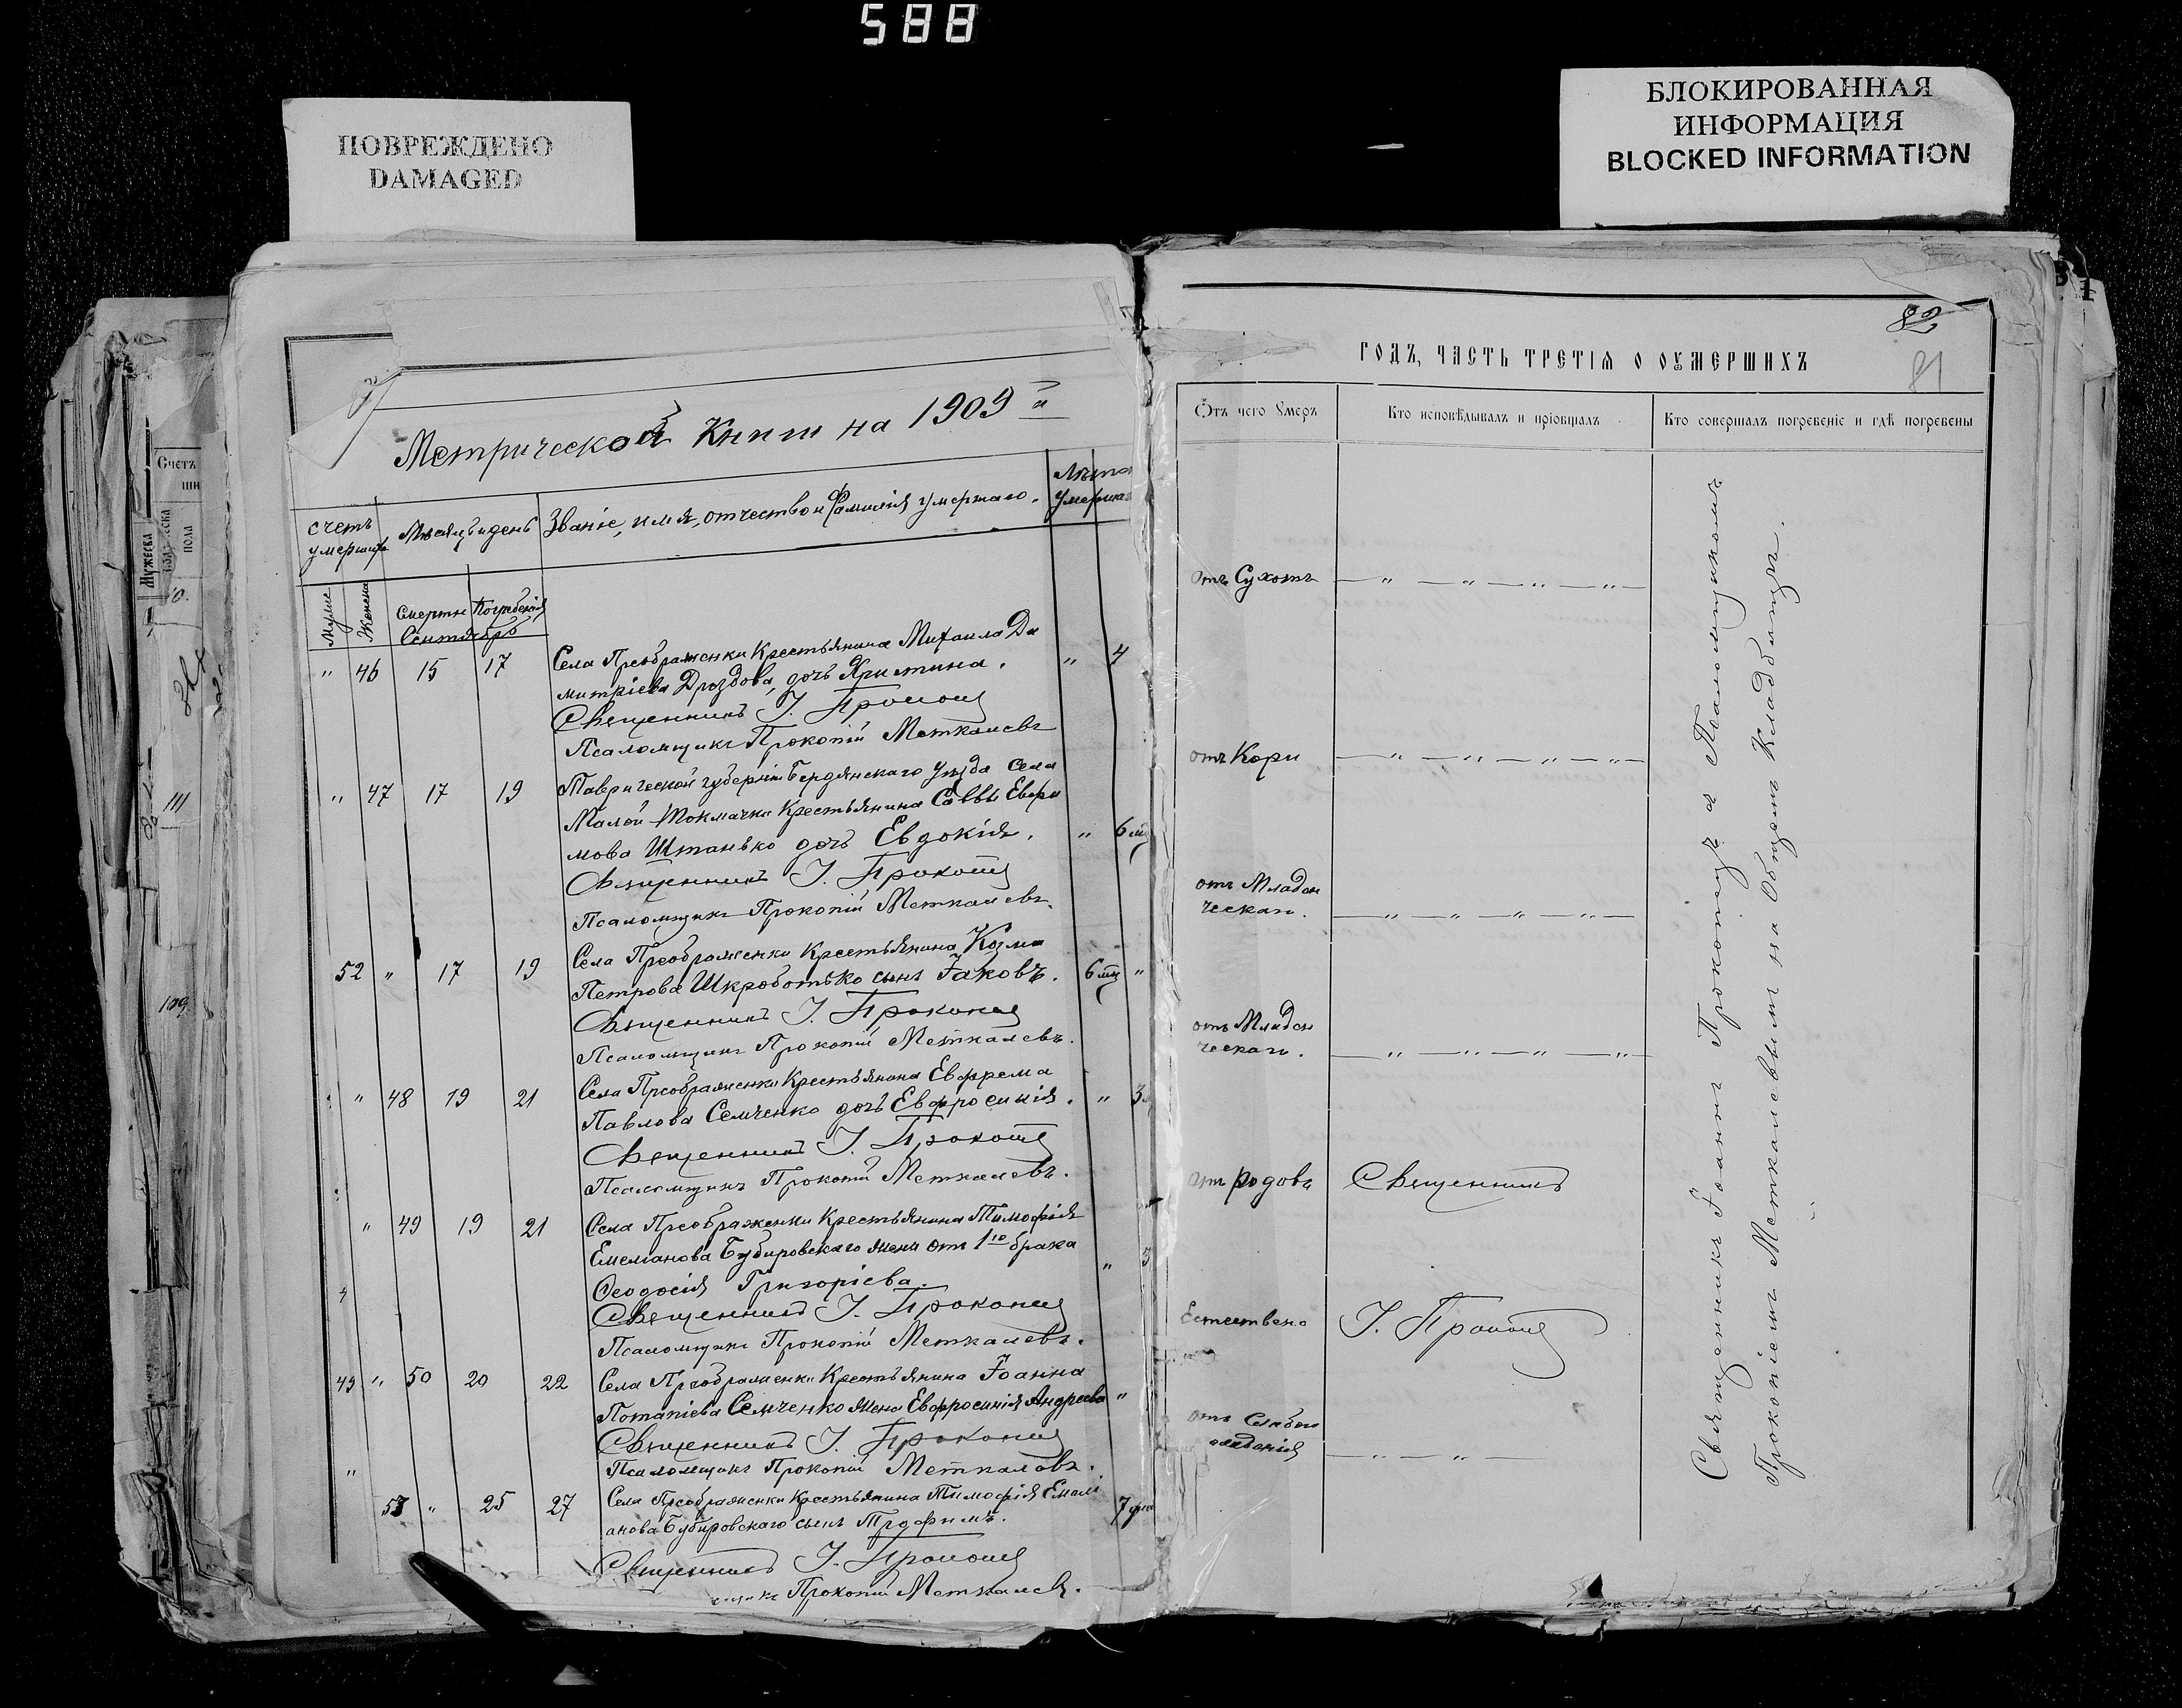 588
ПОВРЕЖДЕНО
DAMAGED
БЛОКИРОВАННАЯ
ИНФОРМАЦИЯ
BLOCKED INFORMATION
Счетъ
ши
Мужеска
пола
111
109
Метрической Книги на 1909 й
счетъ умершихъ
Мѣсяцъ и день
Званіе, имя, отчество и фамилія умершаго.
Лѣта умершаго
Мужие
Женска
Смерти
Погребенія
Сентябрь
" 46 15 17 Села Преображенки Крестьянина Михаила Ди " 4
митріева Дроздова, дочь Христина.
Священникъ І. Прокопецъ
Псаломщикъ Прокопій Меткалевъ
" 47 17 19 Таврической губерніи Бердянскаго уѣзда села
Малой-Токмачки Крестьянина Саввы Евфи
мова Штанько дочь Евдокія. " 6 мц
Священникъ І. Прокопецъ
Псаломщикъ Прокопій Меткалевъ.
52 " 17 19 Села Преображенки Крестьянина Козмы
Петрова Шкроботько сынъ Іаковъ. 6 мц "
Священникъ І. Прокопецъ
Псаломщикъ Прокопій Меткалевъ.
" 48 19 21 Села Преображенки Крестьянина Евфрема
Павлова Семченко дочь Евфросинія. " 3
Священникъ І. Прокопецъ
Псаломщикъ Прокопій Меткалевъ.
" 49 19 21 Села Преображенки Крестьянина Тимофія
Емеліанова Бубировскаго жена отъ 1го брака "
Феодосія Григоріева.
Священникъ І. Прокопецъ
Псаломщикъ Прокопій Меткалевъ.
49 " 50 20 22 Села Преображенки Крестьянина Іоанна
Потапіева Семченко жена Евфросинія Андреева "
Священникъ І. Прокопецъ
Псаломщикъ Прокопій Меткалевъ.
53 " 25 27 Села Преображенки Крестьянина Тимофія Емелі
анова Бубировскаго сынъ Трофимъ. 7 дни
Священникъ І. Прокопецъ
Прокопій Меткалевъ.
82
81
ГОДЪ, ЧАСТЬ ТРЕТІѦ О ОУМЕРШИХЪ
Отъ чего умеръ
Кто исповѣдывалъ и пріобщалъ
Кто совершалъ погребеніе и гдѣ погребены
отъ Сухотъ — " — " — " — " —
отъ Кори — " — " — " — " —
отъ Младен
ческаго. — " — " — " — " —
отъ Младен
ческаго. — " — " — " — " —
отъ родовъ Священникъ
Естествено І. Прокопецъ
отъ Слабого
— " — " —
Священникъ Іоаннъ Прокопецъ съ Псаломщикомъ
Прокопіемъ Меткалевымъ на Общемъ Кладбищѣ.